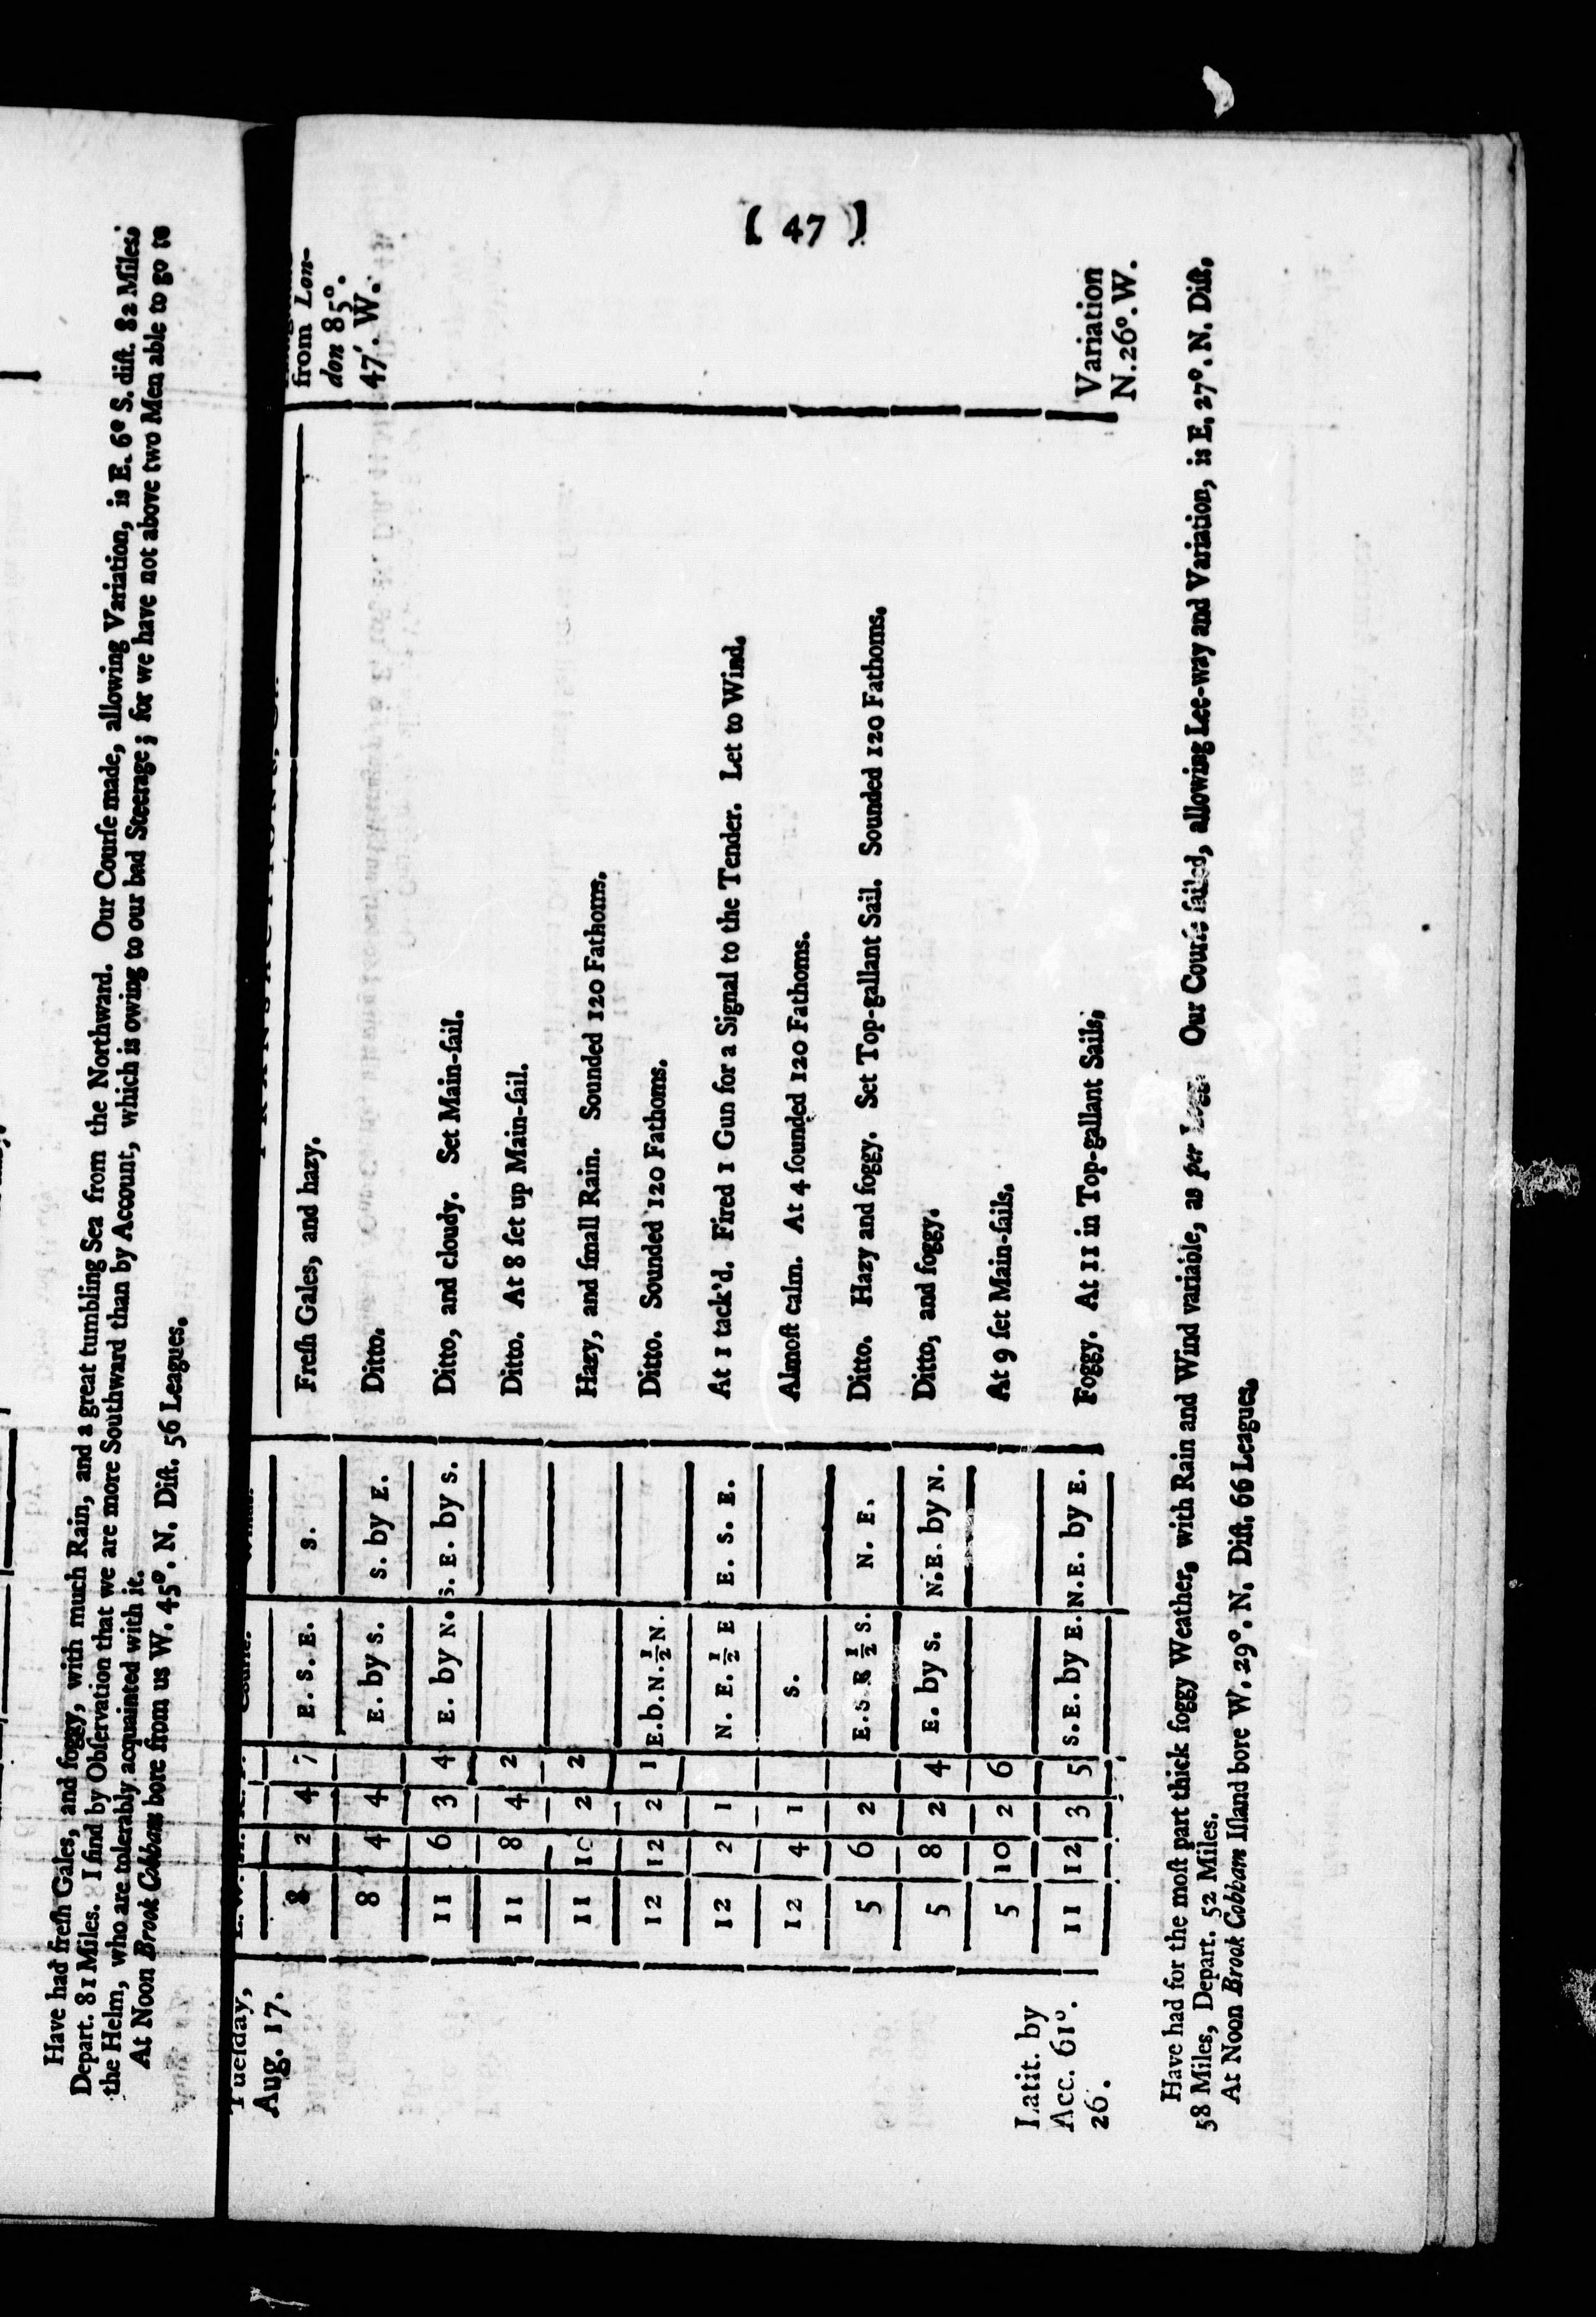 Have had freſh Gales, and foggy, with much Rain, and a great tumbling Sea from the Northward. Our Courſe made, allowing Variation, is E. 6° S. diſt. 82 Miles.
Depart. 81 Miles. I find by Obſervation that we are more Southward than by Account, which is owing to our bad Steerage; for we have not above two Men able to go to
the Helm, who are tolerably acquainted with it.
At Noon Brook Cobham bore from us W. 45°. N. Diſt. 56 Leagues.
[ 47 ]
Tueſday,
Aug. 17.
from Lon-
don 85°.
47'. W.
8 2 4 7 E. S. E. S. Freſh Gales, and hazy.
8 4 4 E. by S. S. by E. Ditto.
11 6 3 4 E. by N. S. E. by S. Ditto, and cloudy. Set Main-ſail.
11 8 4 2 Ditto. At 8 ſet up Main-ſail.
11 10 2 2 Hazy, and ſmall Rain. Sounded 120 Fathoms.
12 12 2 1 E.b.N.½N. Ditto. Sounded 120 Fathoms.
12 2 1 N. E. ½ E E. S. E. At 1 tack'd. Fired 1 Gun for a Signal to the Tender. Let to Wind.
12 4 1 S. Almoſt calm. At 4 ſounded 120 Fathoms.
5 6 2 E.S.E ½ S. N. E. Ditto. Hazy and foggy. Set Top-gallant Sail. Sounded 120 Fathoms.
5 8 2 4 E. by S. N.E. by N. Ditto, and foggy.
5 10 2 6 At 9 ſet Main-ſails.
11 12 3 5 S.E. by E. N.E. by E. Foggy. At 11 in Top-gallant Sails.
Latit. by
Acc. 61°.
26'.
Variation
N.26°.W.
Have had for the moſt part thick foggy Weather, with Rain and Wind variable, as per Our Courſe ſailed, allowing Lee-way and Variation, is E. 27°. N. Diſt.
58 Miles, Depart. 52 Miles.
At Noon Brook Cobham Iſland bore W. 29°. N. Diſt. 66 Leagues.